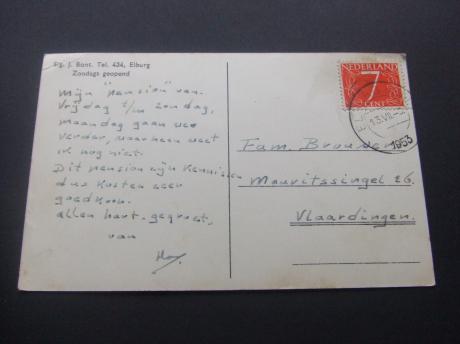 Fg. J. Bont. Tel. 434, Elburg
Zondags geopend
Mijn "Pension" van
Vrijdag t/m Zondag,
maandag gaan we
verder, waarheen weet
ik nog niet.
Dit pension zijn kennissen
dus kosten zeer
goedkoop.
allen hart. gegroet,
van
NEDERLAND
7
CENT
13.VII
1953
Fam. Brouwer
Mauritssingel 26.
Vlaardingen.